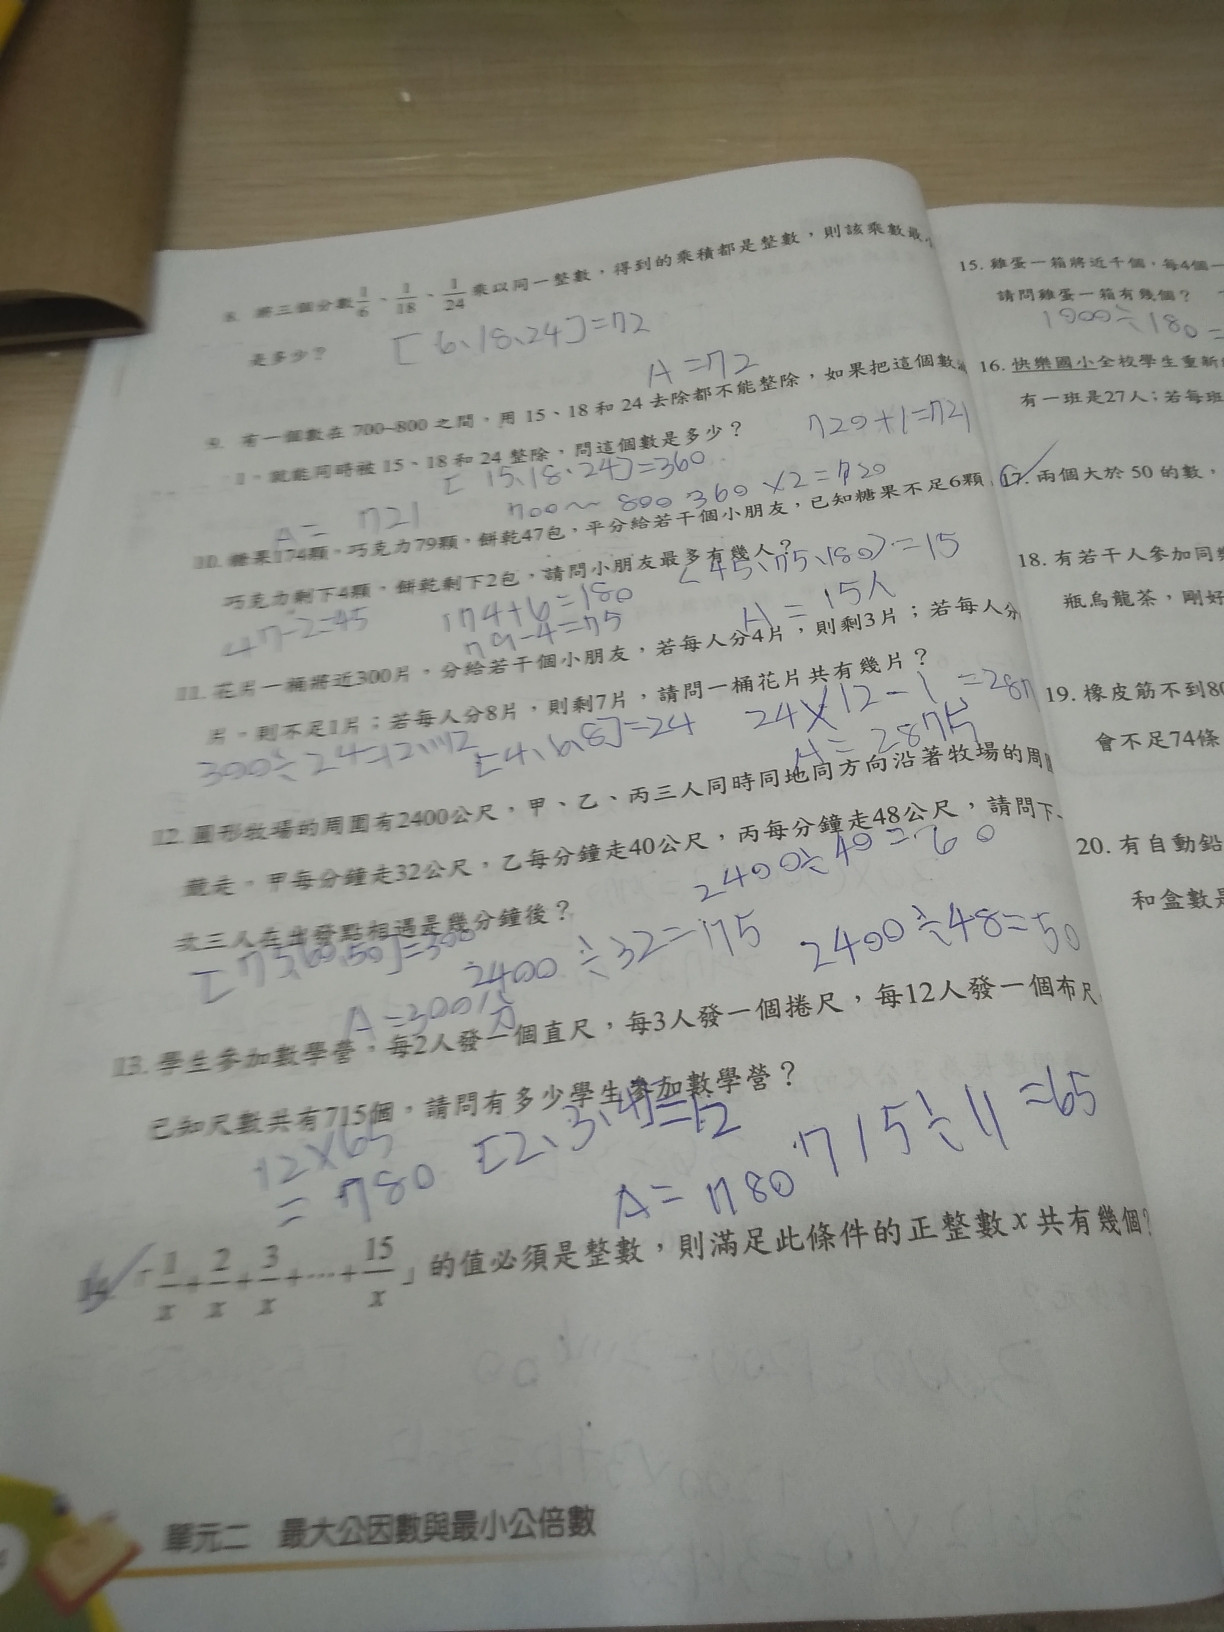 8. 將三個分數1/6、1/18、1/24乘以同一整數，得到的乘積都是整數，則該乘數最小
是多少？
[6、18、24]=72
A=72
9. 有一個數在 700~800 之間，用 15、18 和 24 去除都不能整除，如果把這個數
1，就能同時被 15、18 和 24 整除，問這個數是多少？
720+1=721
[15、18、24]=360
700～800 360×2=720
A= 721
10. 糖果174顆，巧克力79顆，餅乾47包，平分給若干個小朋友，已知糖果不足6顆
巧克力剩下4顆，餅乾剩下2包，請問小朋友最多有幾人？
(45、75、180)=15
47-2=45
174+6=180
79-4=75
A=15人
11. 花片一桶將近300片，分給若干個小朋友，若每人分4片，則剩3片；若每人分
片，則不足1片；若每人分8片，則剩7片，請問一桶花片共有幾片？
300÷24=12…12
[4、6、8]=24
24×12-1=287
A=287片
12. 圓形牧場的周圍有2400公尺，甲、乙、丙三人同時同地同方向沿著牧場的周
繞走，甲每分鐘走32公尺，乙每分鐘走40公尺，丙每分鐘走48公尺，請問下
次三人在出發點相遇是幾分鐘後？
2400÷40=60
[75、60、50]=300
2400÷32=75
2400÷48=50
A=300分
13. 學生參加數學營，每2人發一個直尺，每3人發一個捲尺，每12人發一個布尺
已知尺數共有715個，請問有多少學生參加數學營？
12×65
=780
[2、3、4]=12
715÷11=65
A=780
14. 「1/x+2/x+3/x+⋯+15/x」的值必須是整數，則滿足此條件的正整數 x 共有幾個？
單元二 最大公因數與最小公倍數
15. 雞蛋一箱將近千個，每4個一
請問雞蛋一箱有幾個？
1000÷180=
16. 快樂國小全校學生重新
有一班是27人；若每班
17. 兩個大於 50 的數，
18. 有若干人參加同
瓶烏龍茶，剛好
19. 橡皮筋不到80
會不足74條
20. 有自動鉛
和盒數是